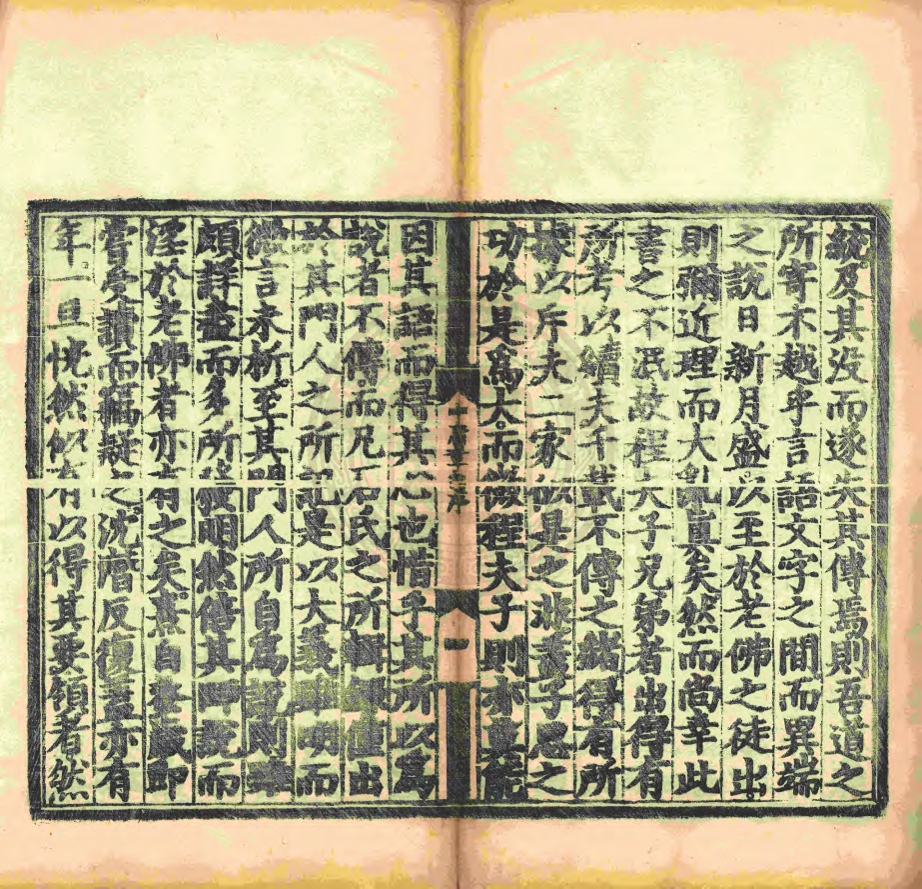 統及其沒而遂失其傳焉則吾道之
所寄不越乎言語文字之間而異端
之說日新月盛以至於老佛之徒出
則彌近理而大亂真矣然而尚幸此
書之不泯故程夫子兄弟者出得有
所考以續夫千載不傳之緒得有所
據以斥夫二家似是之非蓋子思之
功於是爲大而微程夫子則亦莫能
因其語而得其心也惜乎其所以爲
說者不傳而凡石氏之所輯錄僅出
於其門人之所記是以大義雖明而
微言未析至其門人所自爲說則雖
頗詳盡而多所發明然倍其師說而
淫於老佛者亦有之矣熹自蚤歲卽
嘗受讀而竊疑之沈潛反復蓋亦有
年一旦恍然似有以得其要領者然